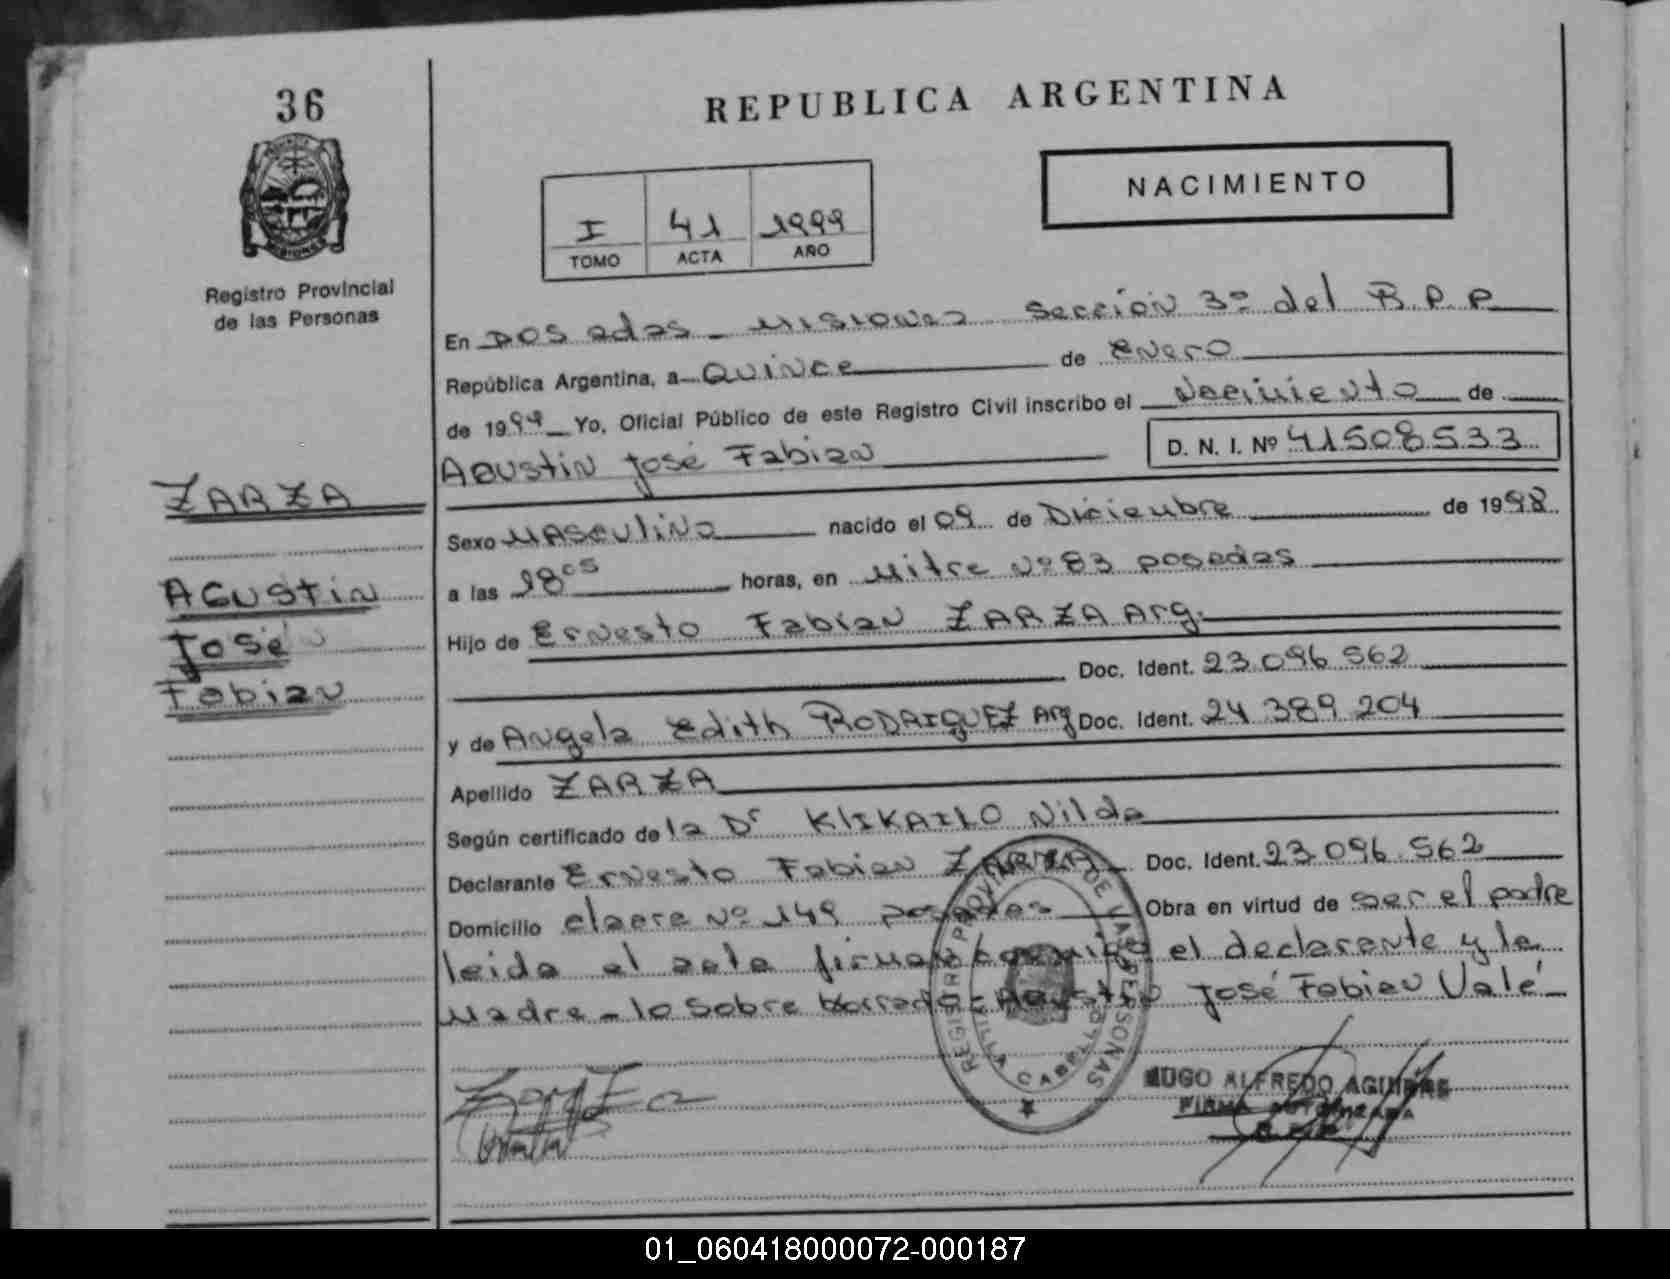 36
REPUBLICA ARGENTINA
NACIMIENTO
I 41 1999
TOMO ACTA AÑO
Registro Provincial
de las Personas
En Posadas - Misiones Sección 3º del R.P.P
República Argentina, a Quince de Enero
de 1999 Yo, Oficial Público de este Registro Civil inscribo el Nacimiento de
Agustin José Fabian D. N. I. Nº 41508533
ZARZA
Agustin
José
Fabian
Sexo Masculino nacido el 09 de Diciembre de 1998
a las 18 05 horas, en Mitre Nº 83 posadas
Hijo de Ernesto Fabian ZARZA Arg.
Doc. Ident. 23.096.562
y de Angela Edith RODRIGUEZ Arg Doc. Ident. 24 389 204
Apellido ZARZA
Según certificado de la Dr KLIKAILO Nilda
Declarante Ernesto Fabian ZARZA Doc. Ident. 23.096.562
Domicilio claera Nº 149 posadas Obra en virtud de ser el padre
leida el acta firman conmigo el declarante y la
Madre - lo sobre borrado - Agustin José Fabian Valé -
REGISTRO PROVINCIAL DE LAS PERSONAS
HUGO ALFREDO AGUIRRE
FIRMA AUTORIZADA
01_060418000072-000187